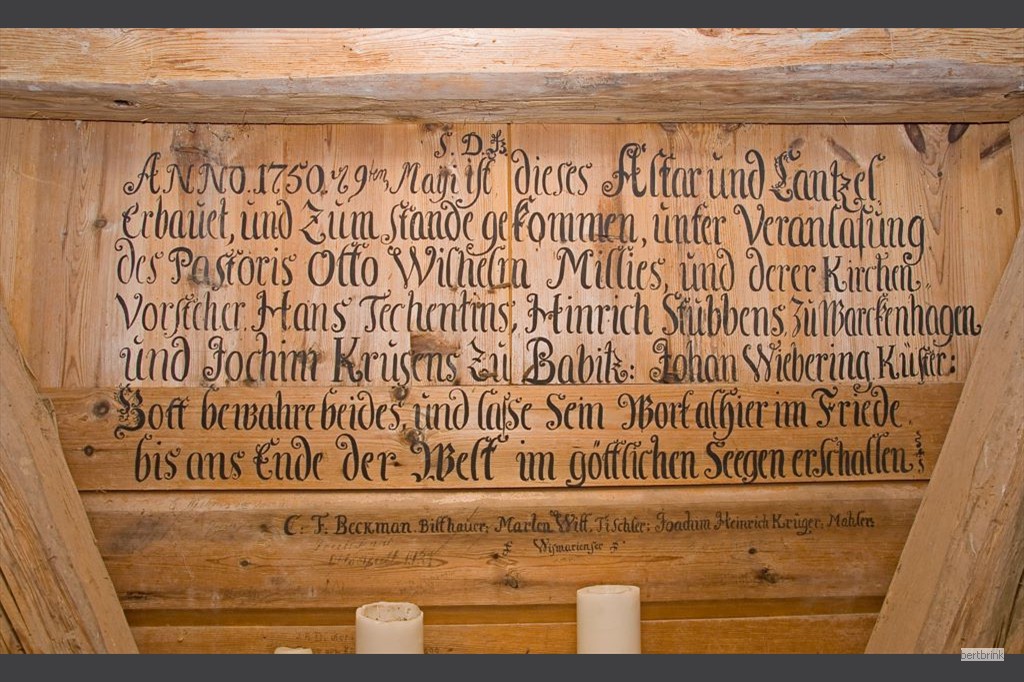 S. D.
ANNO. 1750. d 9ten, Maÿi ist dieses Altar und Cantzel,
Erbauet, und Zum stande gekommen, unter Veranlasung
des Pastoris Otto Wilhelm Millies, und derer Kirchen
Vorsteher. Hans Techentins, Hinrich Stübbens, zu Warckenhagen
und Jochim Krügens Zu Babitz: Johan Wiebering Küster:
Gott bewahre beides, und lasse Sein Wort alhier im Friede
bis ans Ende der Welt im göttlichen Seegen erschallen
C. F. Beckman. Bilthauer; Marten Witt, Tischler; Joachim Heinrich Krüger; Mahler;
Wismarienser
bertbrink